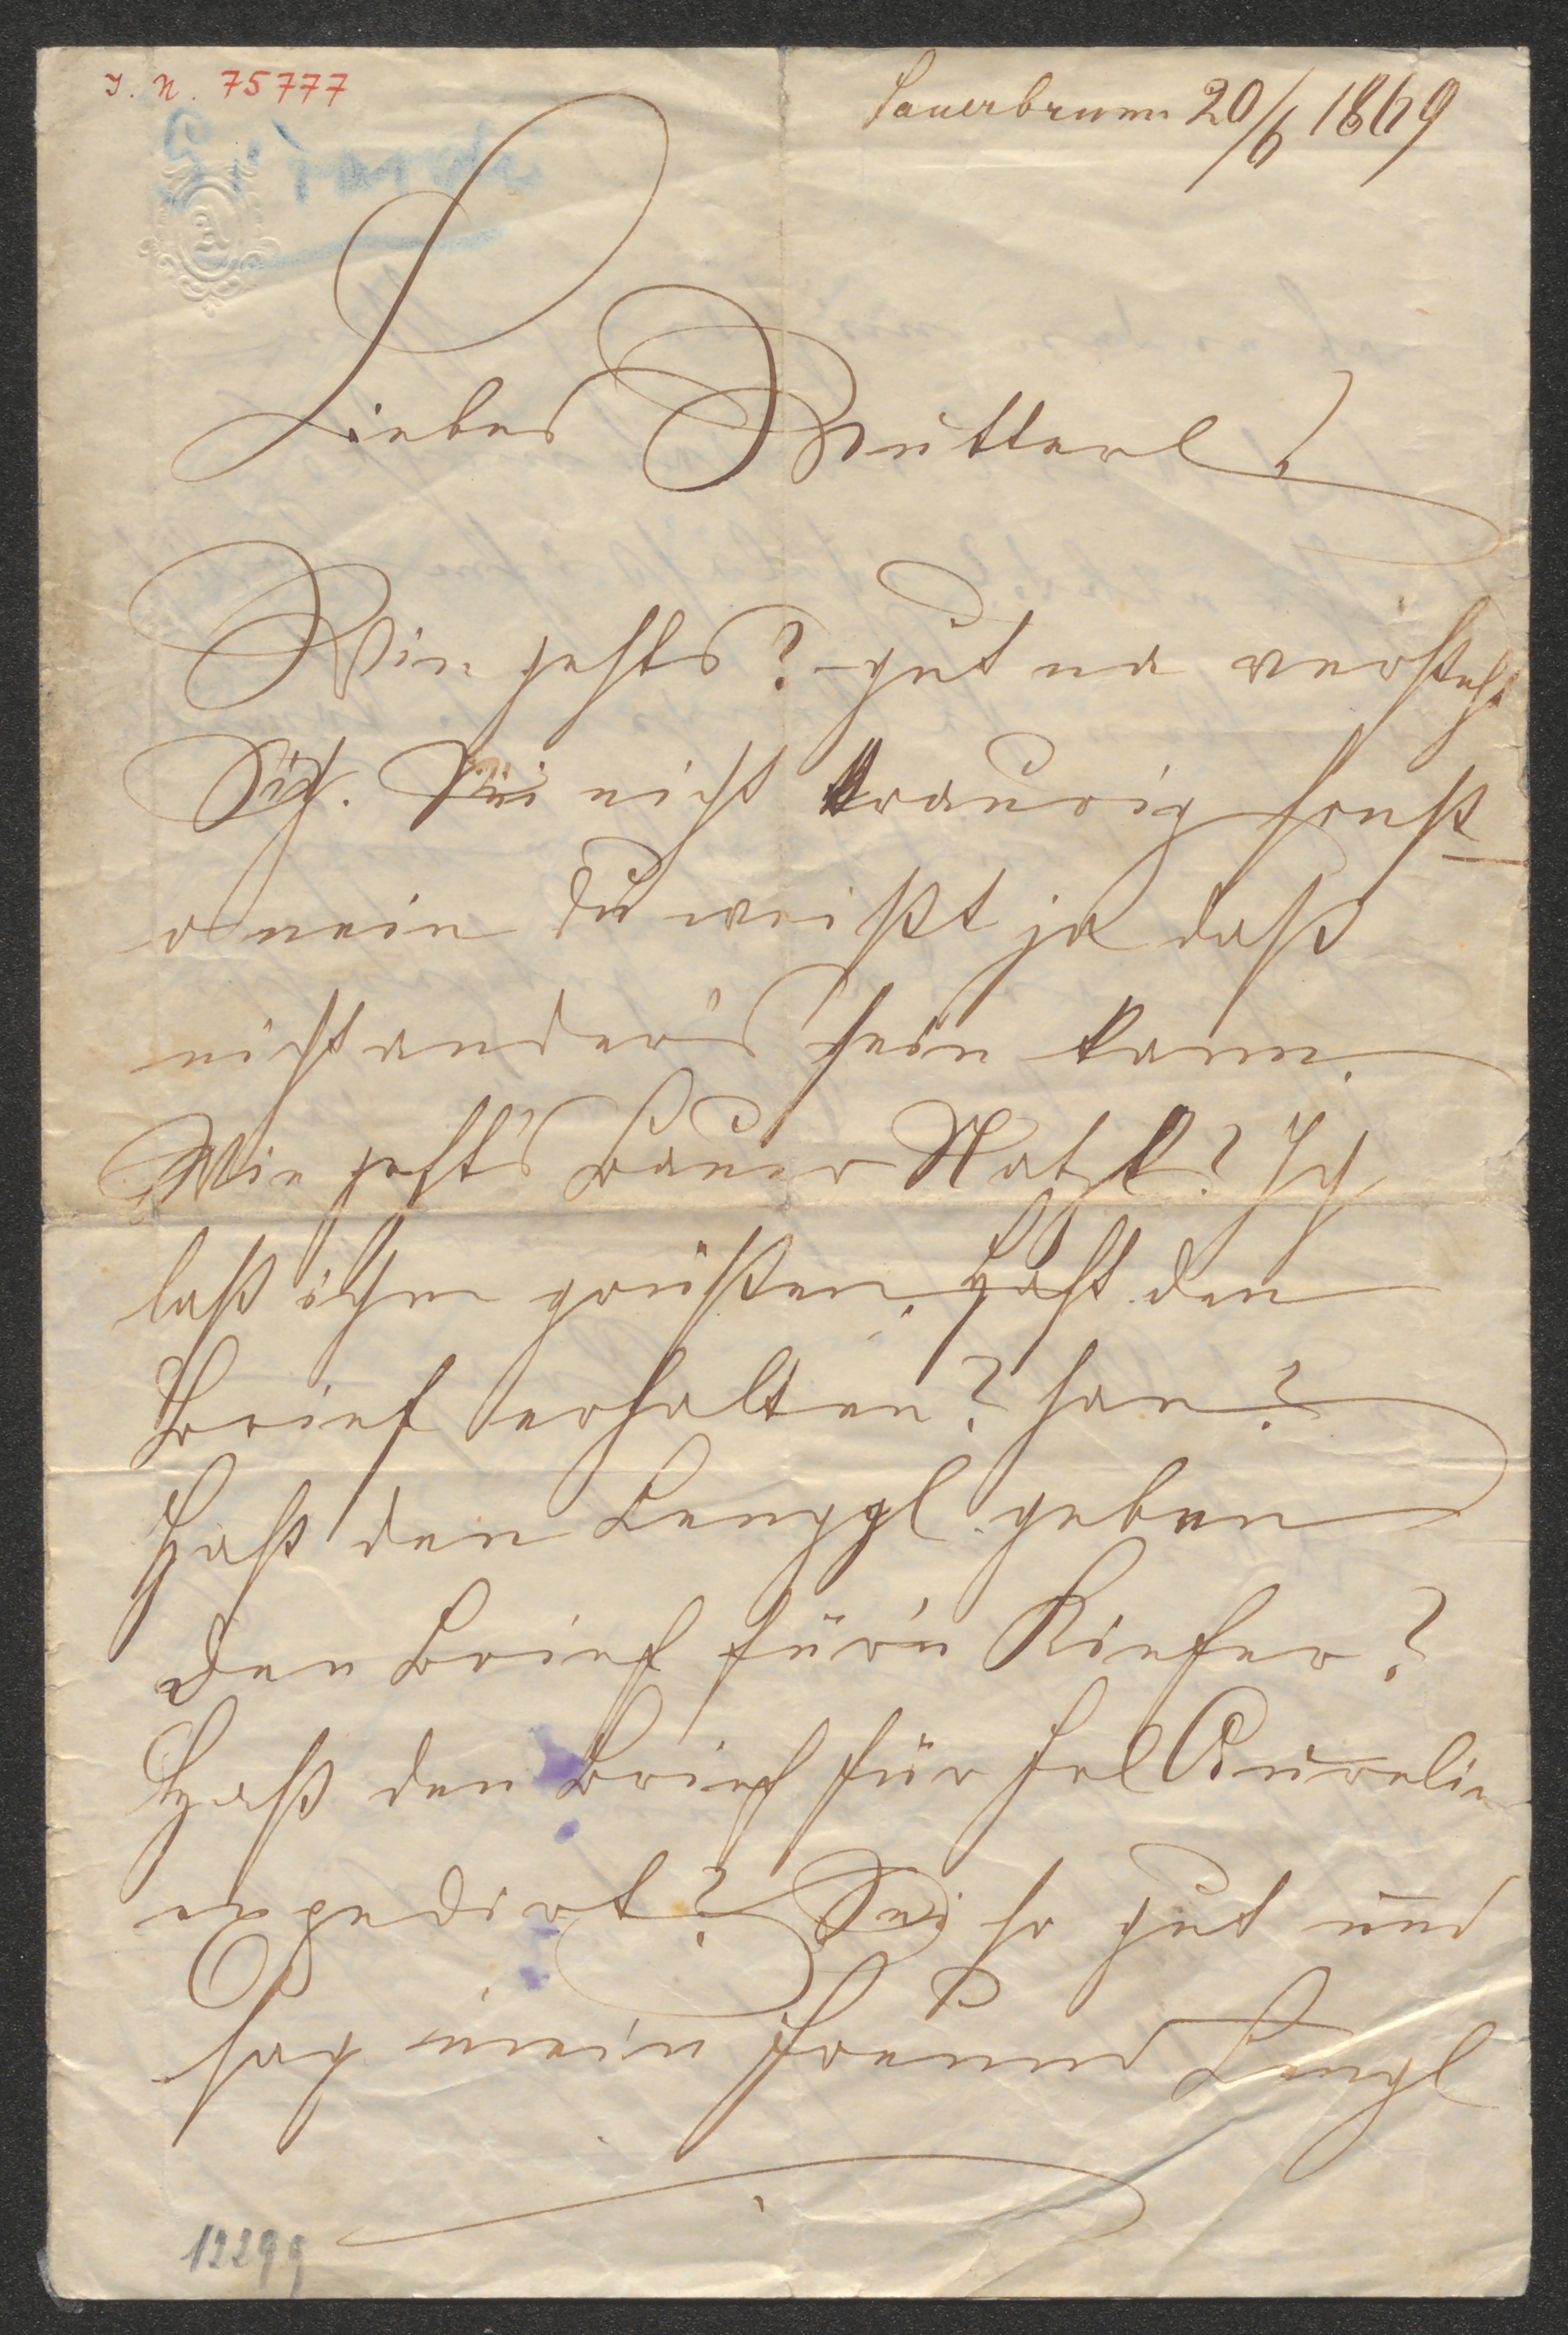 I. N. 75777
Sauerbrunn 20/6 1869
Liebes Mutterl!
Wie gehts? – gut na versteht
Sich. Sei nicht traurig sonst –
o nein Du weißt ja daß
nicht anders sein kann.
Wie geht's Bauer Natzl? Ich
laß ihm grüßen. Hast den
Brief erhalten? han?
Hast den Lenggl. geben
den Brief für'n Kiefer?
Hast den Brief für Frl Aurelie
expedirt? Sei so gut und
sag mein Freund Lengl
12299